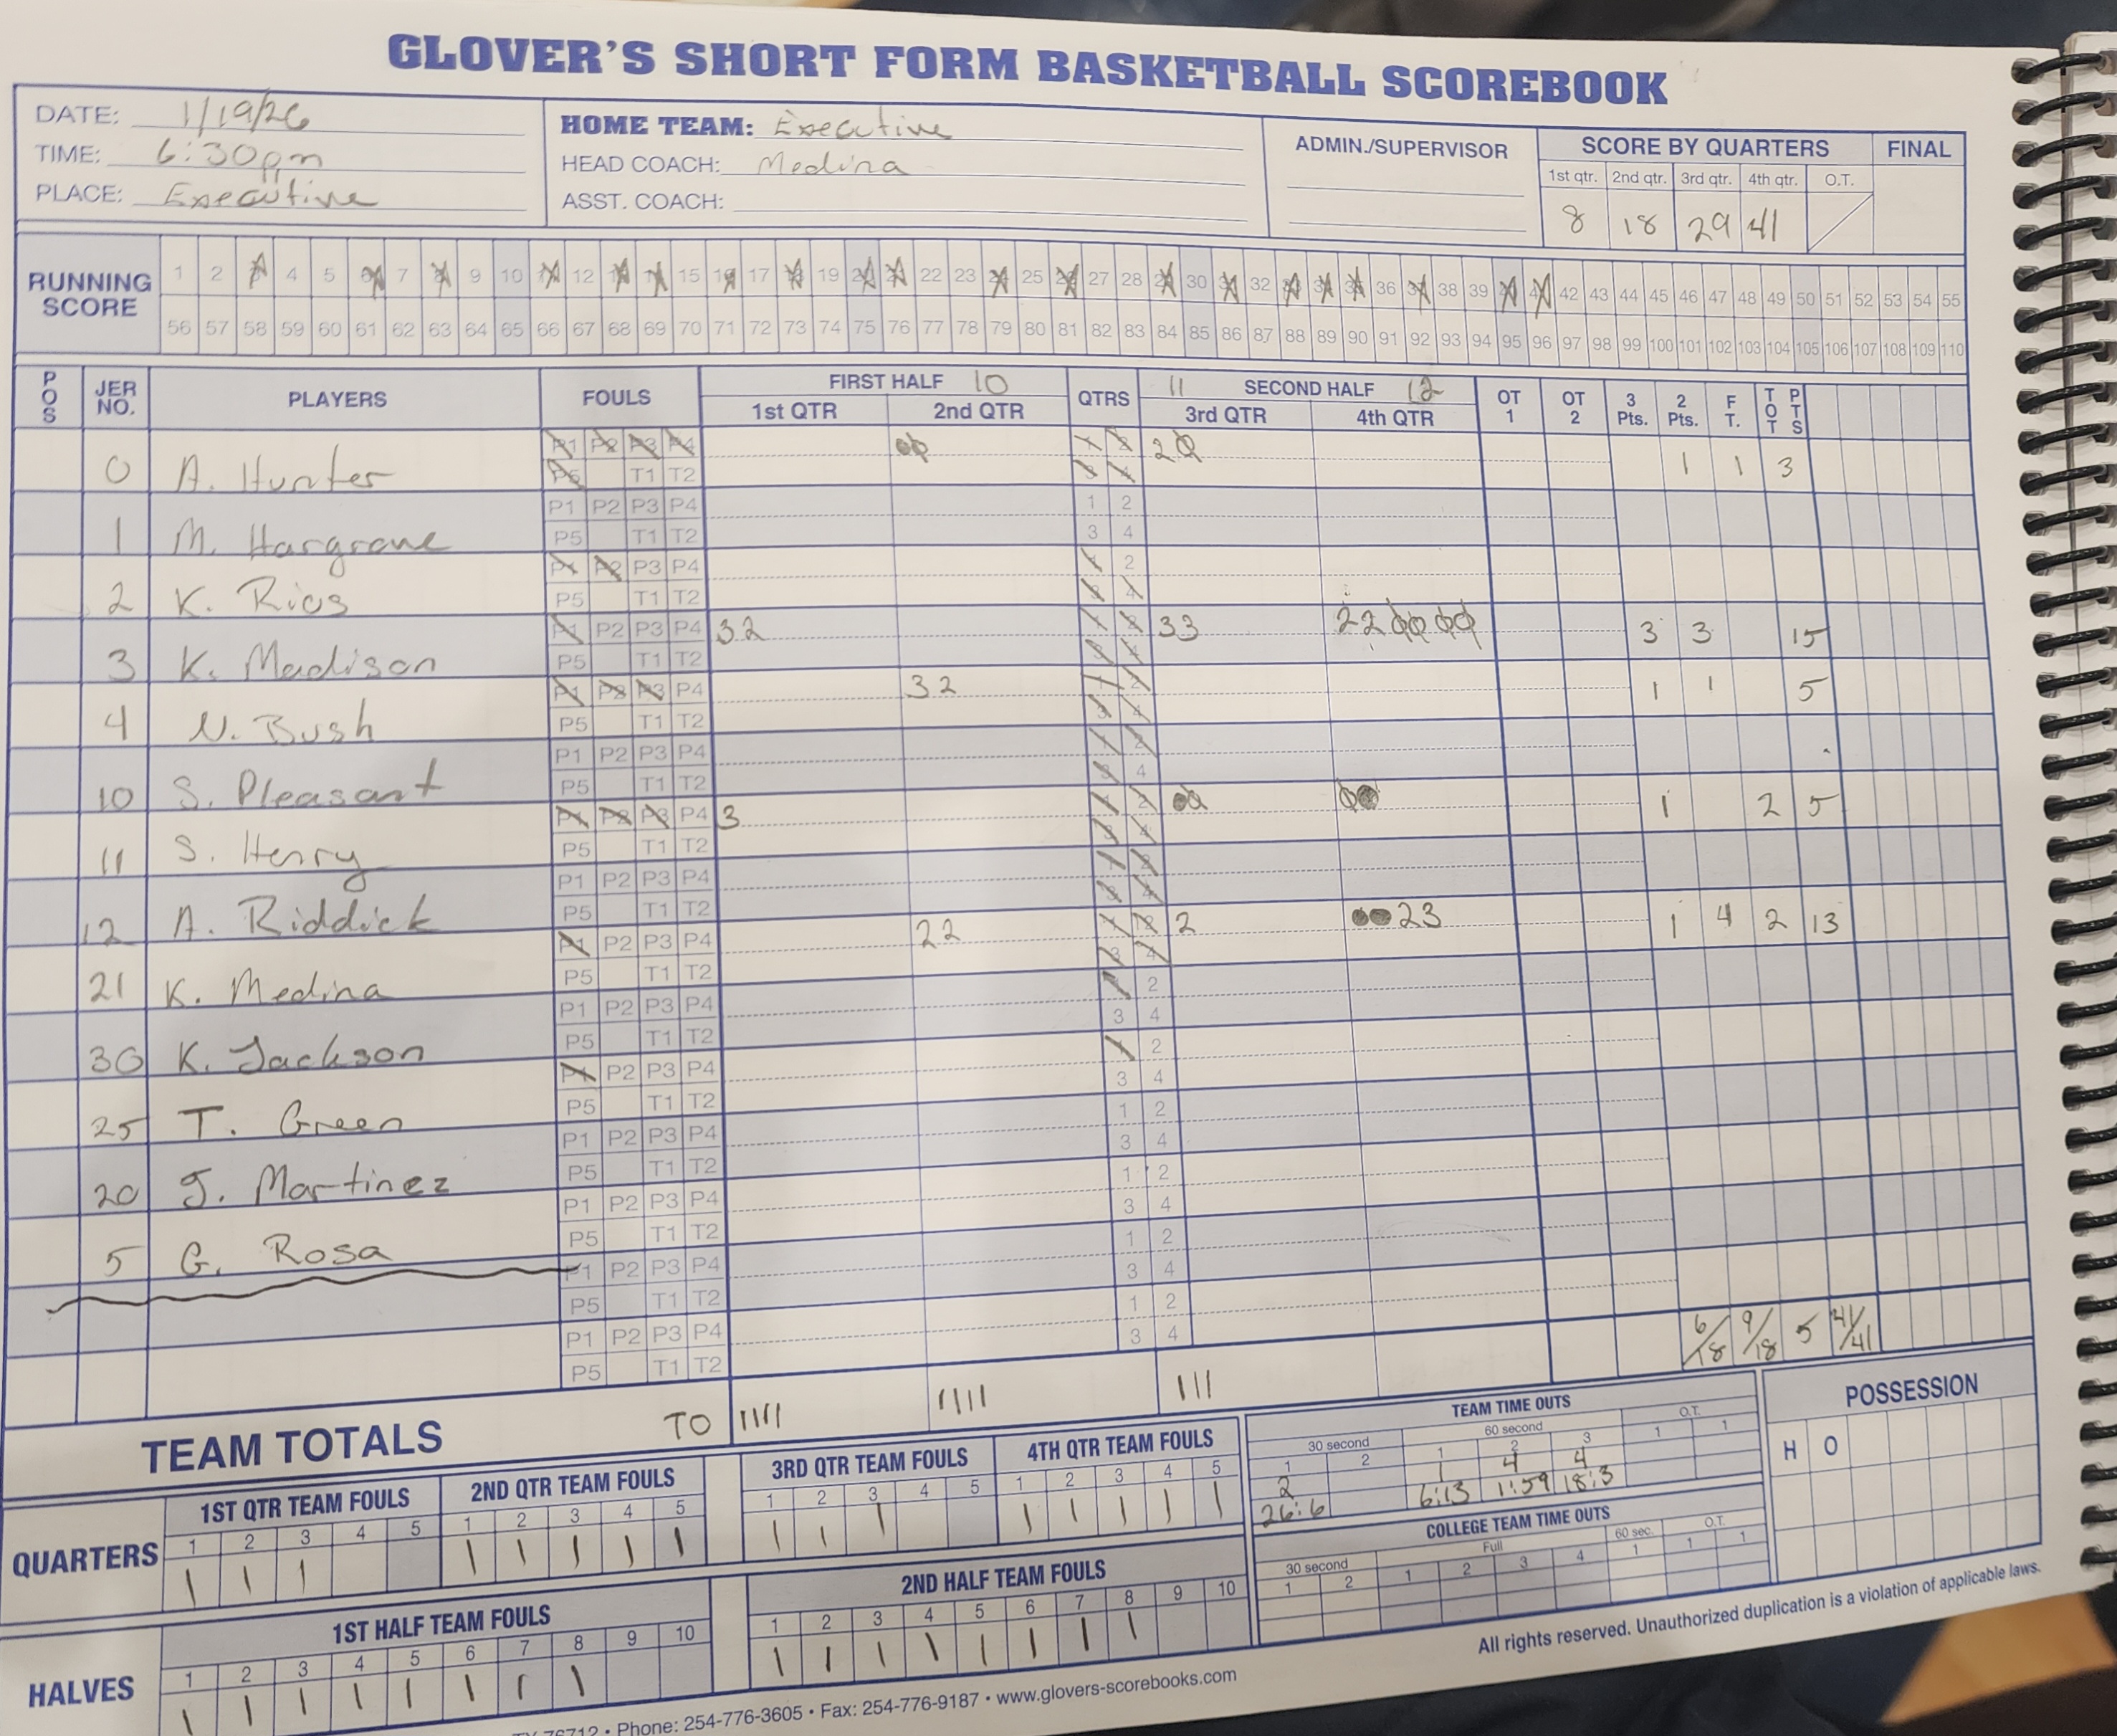 GLOVER'S SHORT FORM BASKETBALL SCOREBOOK
DATE: 1/19/26
TIME: 6:30pm
PLACE: Executive
HOME TEAM: Executive
HEAD COACH: Medina
ASST. COACH:
ADMIN./SUPERVISOR
SCORE BY QUARTERS FINAL
1st qtr. 2nd qtr. 3rd qtr. 4th qtr. O.T.
8 18 29 41
RUNNING SCORE
1 2 4 5 7 9 10 12 15 17 19 22 23 25 27 28 30 32 36 38 39 42 43 44 45 46 47 48 49 50 51 52 53 54 55
56 57 58 59 60 61 62 63 64 65 66 67 68 69 70 71 72 73 74 75 76 77 78 79 80 81 82 83 84 85 86 87 88 89 90 91 92 93 94 95 96 97 98 99 100 101 102 103 104 105 106 107 108 109 110
POS JER NO. PLAYERS FOULS FIRST HALF 10 QTRS 11 SECOND HALF 12 OT 1 OT 2 3 Pts. 2 Pts. F T. TOT PTS
1st QTR 2nd QTR 3rd QTR 4th QTR
0 A. Hunter P1 P2 P3 P4 2 1 1 3
P5 T1 T2
1 M. Hargrove P1 P2 P3 P4 1 2
P5 T1 T2 3 4
2 K. Rios P1 P2 P3 P4 1 2
P5 T1 T2 3 4
3 K. Madison P1 P2 P3 P4 32 1 2 33 22 3 3 15
P5 T1 T2 3 4
4 N. Bush P1 P2 P3 P4 32 1 2 1 1 5
P5 T1 T2 3 4
10 S. Pleasant P1 P2 P3 P4 1 2
P5 T1 T2 3 4
11 S. Henry P1 P2 P3 P4 3 1 2 1 2 5
P5 T1 T2 3 4
12 A. Riddick P1 P2 P3 P4 1 2
P5 T1 T2 3 4
21 K. Medina P1 P2 P3 P4 22 1 2 2 23 1 4 2 13
P5 T1 T2 3 4
30 K. Jackson P1 P2 P3 P4 1 2
P5 T1 T2 3 4
25 T. Green P1 P2 P3 P4 1 2
P5 T1 T2 3 4
20 J. Martinez P1 P2 P3 P4 1 2
P5 T1 T2 3 4
5 G. Rosa P1 P2 P3 P4 1 2
P5 T1 T2 3 4
P1 P2 P3 P4 1 2
P5 T1 T2 3 4
P1 P2 P3 P4
P5 T1 T2
6/18 9/18 5 41/41
TEAM TOTALS TO IIII IIII III
QUARTERS
1ST QTR TEAM FOULS
1 2 3 4 5
2ND QTR TEAM FOULS
1 2 3 4 5
3RD QTR TEAM FOULS
1 2 3 4 5
4TH QTR TEAM FOULS
1 2 3 4 5
TEAM TIME OUTS
30 second 60 second O.T.
1 2 1 2 3 1 1
2 1 4 4
26:6 6:13 1:59 18:3
COLLEGE TEAM TIME OUTS
30 second Full 60 sec. O.T.
1 2 1 2 3 4 1 1 1
POSSESSION
H O
HALVES
1ST HALF TEAM FOULS
1 2 3 4 5 6 7 8 9 10
2ND HALF TEAM FOULS
1 2 3 4 5 6 7 8 9 10
76712 • Phone: 254-776-3605 • Fax: 254-776-9187 • www.glovers-scorebooks.com
All rights reserved. Unauthorized duplication is a violation of applicable laws.